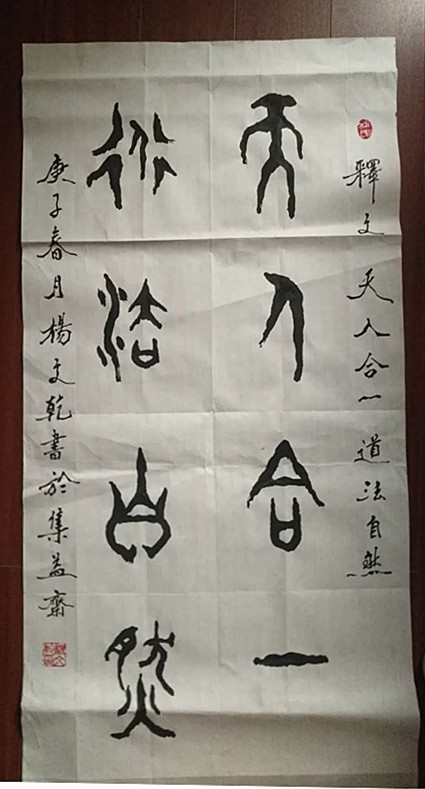 釋文 天人合一 道法自然
天人合一
道法自然
庚子春月楊文乾書於集益齋